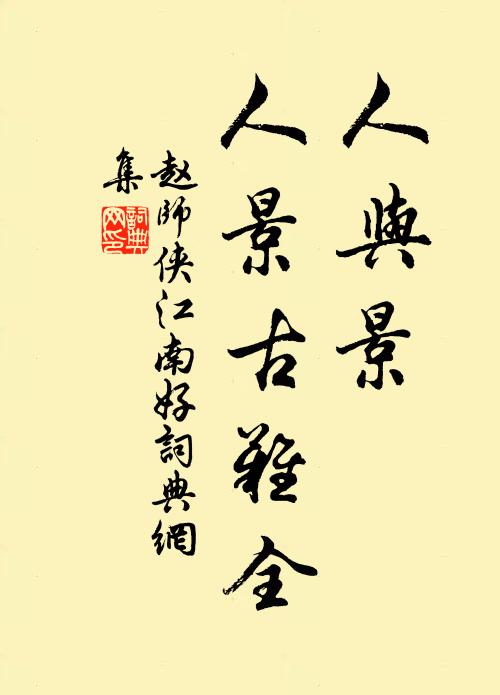 人與景
人景古難全
赵師侠江南好詞典網
集
詞典网印